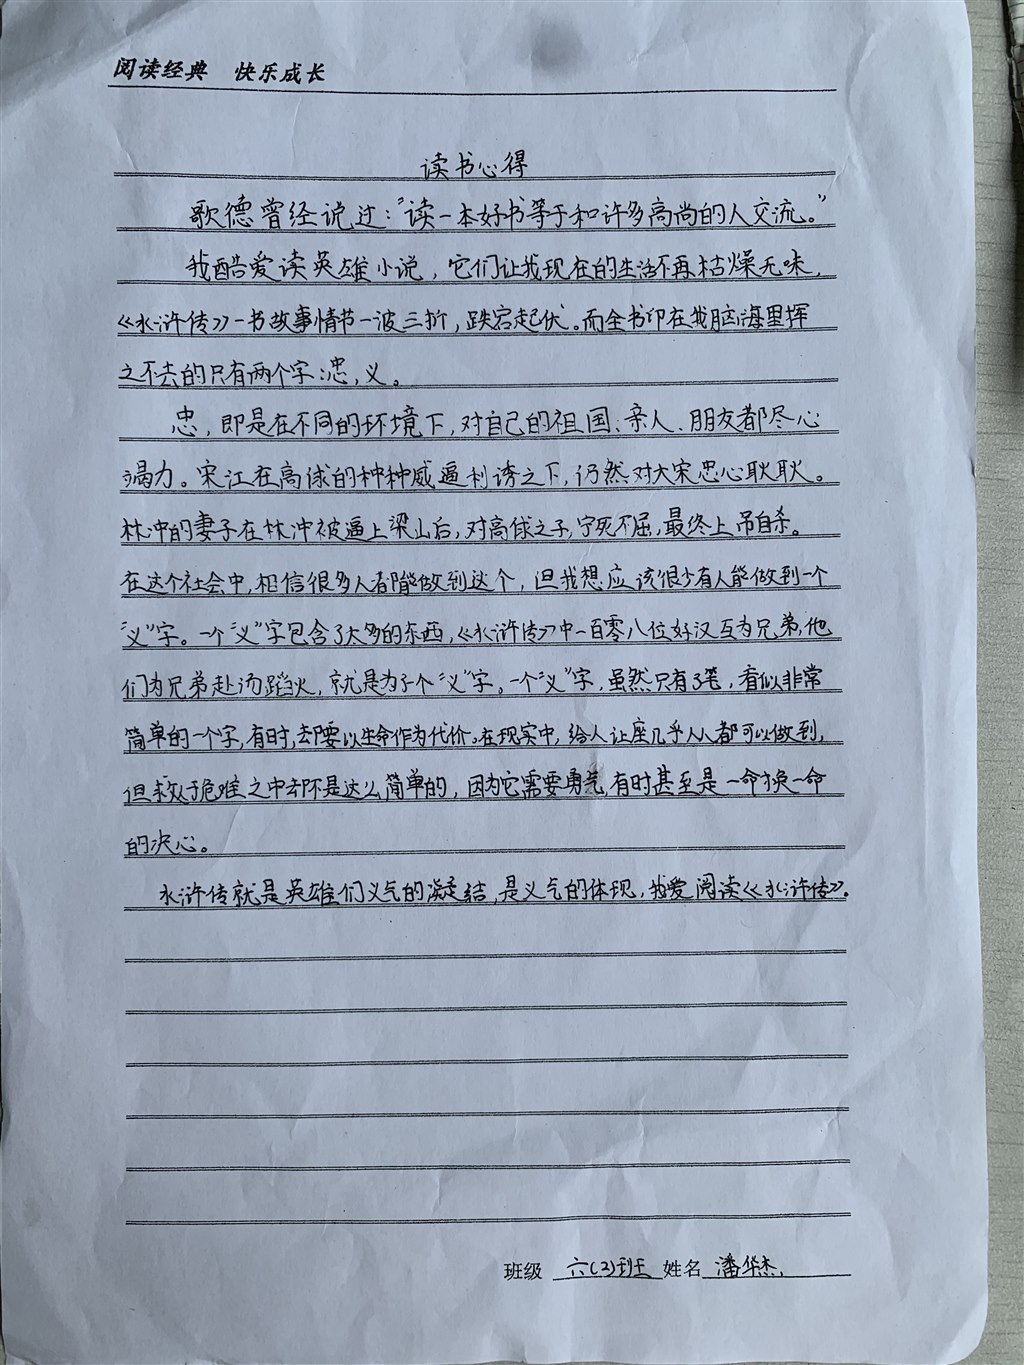 阅读经典 快乐成长
读书心得
歌德曾经说过:"读一本好书等于和许多高尚的人交流。"
我酷爱读英雄小说，它们让我现在的生活不再枯燥无味，
《水浒传》一书故事情节一波三折，跌宕起伏。而全书印在我脑海里挥
之不去的只有两个字:忠，义。
忠，即是在不同的环境下，对自己的祖国、亲人、朋友都尽心
竭力。宋江在高俅的种种威逼利诱之下，仍然对大宋忠心耿耿。
林冲的妻子在林冲被逼上梁山后，对高俅之子，宁死不屈，最终上吊自杀。
在这个社会中，相信很多人都能做到这个，但我想应该很少有人能做到一个
"义"字。一个"义"字包含了太多的东西，《水浒传》中一百零八位好汉互为兄弟，他
们为兄弟赴汤蹈火，就是为了个"义"字。一个"义"字，虽然只有3笔，看似非常
简单的一个字，有时，却要以生命作为代价。在现实中，给人让座几乎人人都可以做到，
但救于危难之中却不是这么简单的，因为它需要勇气，有时甚至是一命换一命
的决心。
水浒传就是英雄们义气的凝结，是义气的体现，我爱阅读《水浒传》。
班级 六(2)班 姓名 潘华杰